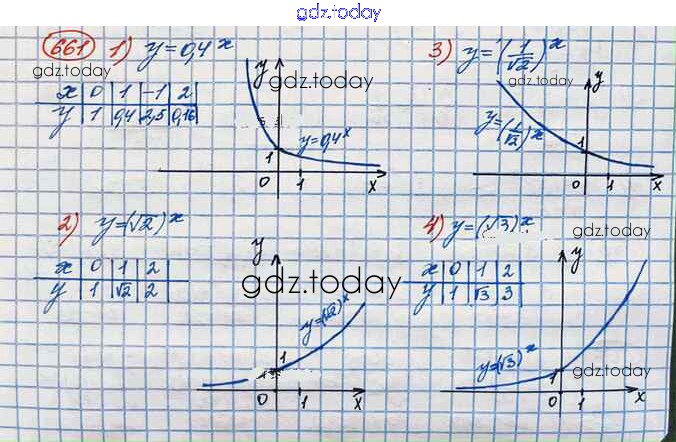 gdz.today
661 1) y = 0,4^x
gdz.today
x 0 1 -1 2
y 1 0,4 2,5 0,16
y
gdz.today
y = 0,4^x
1
0 1 x
3) y = (1/√2)^x
gdz.today
y
y = (1/√2)^x
1
0 1 x
2) y = (√2)^x
x 0 1 2
y 1 √2 2
y
gdz.today
y = (√2)^x
1
0 1 x
4) y = (√3)^x
gdz.today
x 0 1 2
y 1 √3 3
y
y = (√3)^x
gdz.today
1
0 1 x
gdz.today